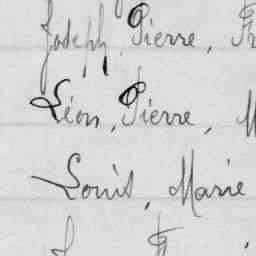 Joseph, Pierre, Fr
Léon, Pierre, M
Louis, Marie